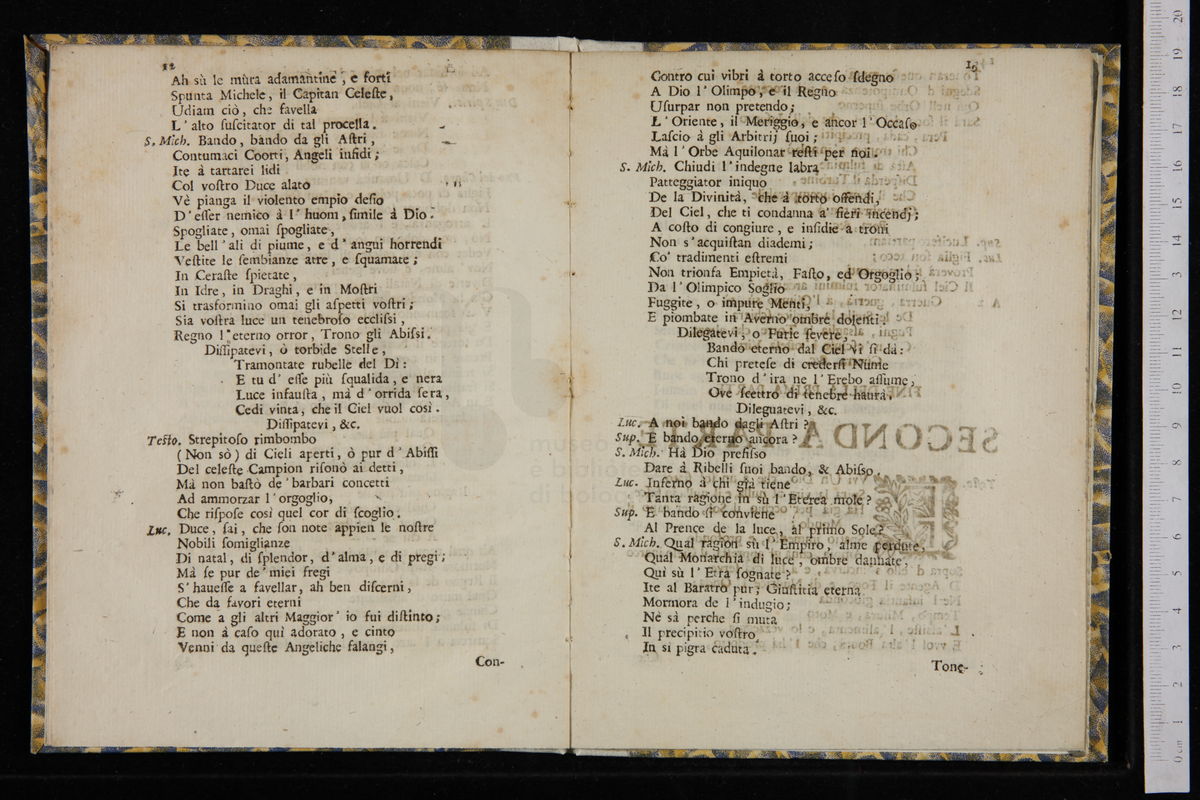 12
Ah sù le mùra adamantine, e forti
Spunta Michele, il Capitan Celeſte,
Udiam ciò, che favella
L'alto ſuſcitator di tal procella.
S. Mich. Bando, bando da gli Aſtri,
Contumaci Coorti, Angeli infidi;
Ite à tartarei lidi
Col voſtro Duce alato
Vè pianga il violento empio deſio
D'eſſer nemico à l'huom, ſimile à Dio.
Spogliate, omai ſpogliate,
Le bell'ali di piume, e d'angui horrendi
Veſtite le ſembianze atre, e ſquamate;
In Ceraſte ſpietate,
In Idre, in Draghi, e in Moſtri
Si trasformino omai gli aſpetti voſtri;
Sia voſtra luce un tenebroſo eccliſsi,
Regno l'eterno orror, Trono gli Abiſsi.
Diſſipatevi, ò torbide Stelle,
Tramontate rubelle del Dì:
E tu d'eſſe più ſqualida, e nera
Luce infauſta, mà d'orrida ſera,
Cedi vinta, che il Ciel vuol così.
Diſſipatevi, &c.
Teſto. Strepitoſo rimbombo
(Non sò) di Cieli aperti, ò pur d'Abiſſi
Del celeſte Campion riſonò ai detti,
Mà non baſtò de'barbari concetti
Ad ammorzar l'orgoglio,
Che riſpoſe così quel cor di ſcoglio.
Luc. Duce, ſai, che ſon note appien le noſtre
Nobili ſomiglianze
Di natal, di ſplendor, d'alma, e di pregi;
Mà ſe pur de'miei fregi
S'haueſſe a favellar, ah ben diſcerni,
Che da favori eterni
Come a gli altri Maggior'io fui diſtinto;
E non à caſo quì adorato, e cinto
Venni da queſte Angeliche falangi,
Con-
Contro cui vibri à torto acceſo ſdegno
A Dio l'Olimpo, e il Regno
Uſurpar non pretendo;
L'Oriente, il Meriggio, e ancor l'Occaſo
Laſcio à gli Arbitrij ſuoi;
Mà l'Orbe Aquilonar reſti per noi.
S. Mich. Chiudi l'indegne labra
Patteggiator iniquo
De la Divinità, che à torto offendi,
Del Ciel, che ti condanna a'fieri incendj;
A coſto di congiure, e inſidie a troni
Non s'acquiſtan diademi;
Co'tradimenti eſtremi
Non trionfa Empietà, Faſto, ed Orgoglio;
Da l'Olimpico Soglio
Fuggite, o impure Menti,
E piombate in Averno ombre dolenti.
Dilegatevi, o Furie ſevere,
Bando eterno dal Ciel vi ſi dà:
Chi preteſe di crederſi Nume
Trono d'ira ne l'Erebo aſſume,
Ove ſcettro di tenebre haurà.
Dileguatevi, &c.
Luc. A noi bando dagli Aſtri?
Sup. E bando eterno ancora?
S. Mich. Hà Dio prefiſso
Dare à Ribelli ſuoi bando, & Abiſso.
Luc. Inferno à chi già tiene
Tanta ragione in sù l'Eterea mole?
Sup. E bando ſi conviene
Al Prence de la luce, al primo Sole?
S. Mich. Qual ragion sù l'Empiro, alme perdute,
Qual Monarchia di luce, ombre dannate,
Qui sù l'Etra ſognate?
Ite al Baratro pur; Giuſtitia eterna
Mormora de l'indugio;
Nè sà perche ſi muta
Il precipitio voſtro
In sì pigra caduta.
Tone-